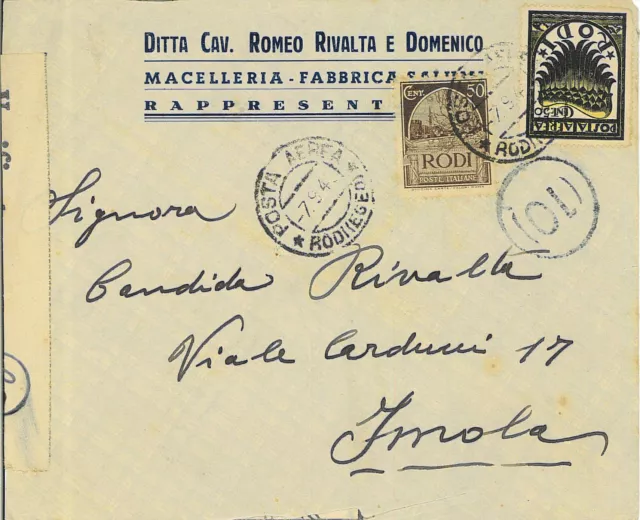 DITTA CAV. ROMEO RIVALTA E DOMENICO
MACELLERIA - FABBRICA SALUMI
RAPPRESENT
CENT. 50
RODI
POSTE ITALIANE
RODI
POSTA AEREA
POSTA AEREA
-7.9.4
RODI (EGEO)
-7.9.4
RODI (EGEO)
(10)
Signora
Candida Rivalta
Viale Carducci 17
Imola